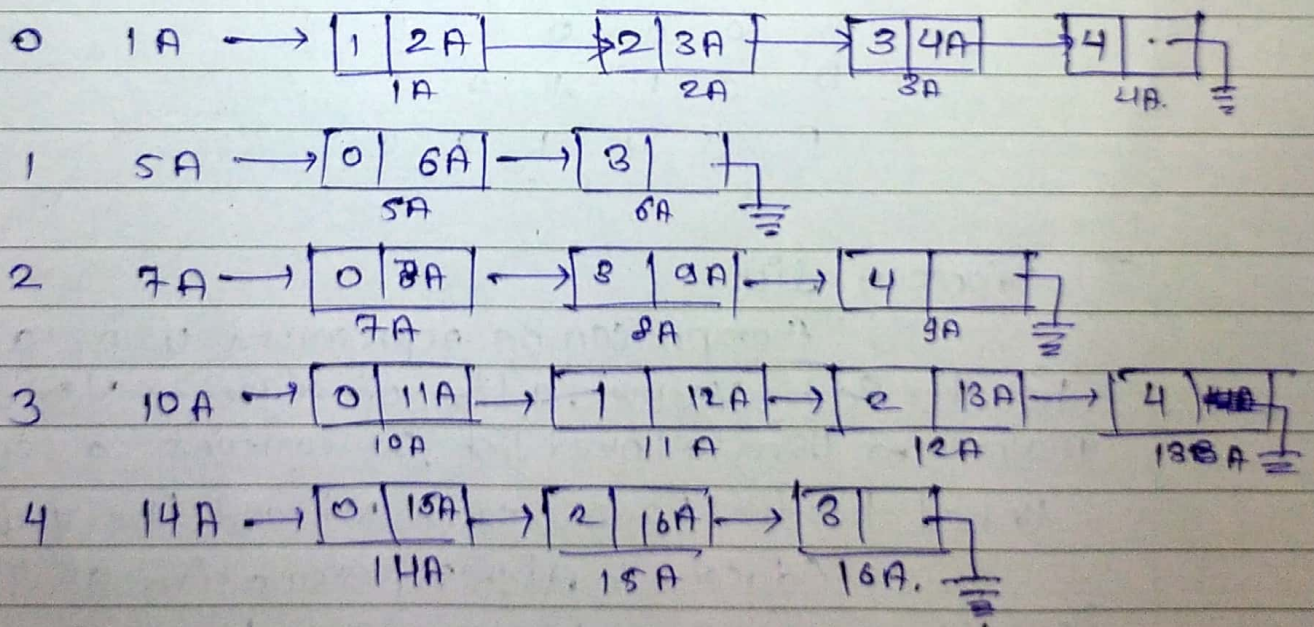 0 1A 1 2A 2 3A 3 4A 4 .
1A 2A 3A 4A.
1 5A 0 6A 3
5A 6A
2 7A 0 8A 3 9A 4
7A 8A 9A
3 10A 0 11A 1 12A 2 13A 4
10A 11A 12A 13A
4 14A 0. 15A 2 16A 3
14A 15A 16A.